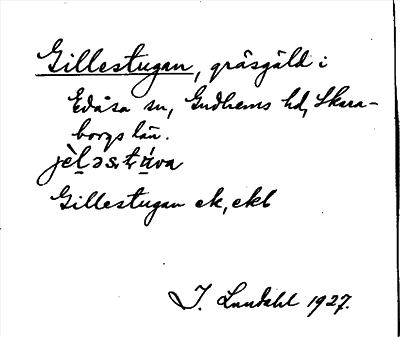 Gillestugan, gräsgäld i
Edåsa sn, Gudhems hd, Skara-
borgs län.
jèl̠əst̠ᶙ́va
Gillestugan ek, ekb
I. Lundahl 1927.